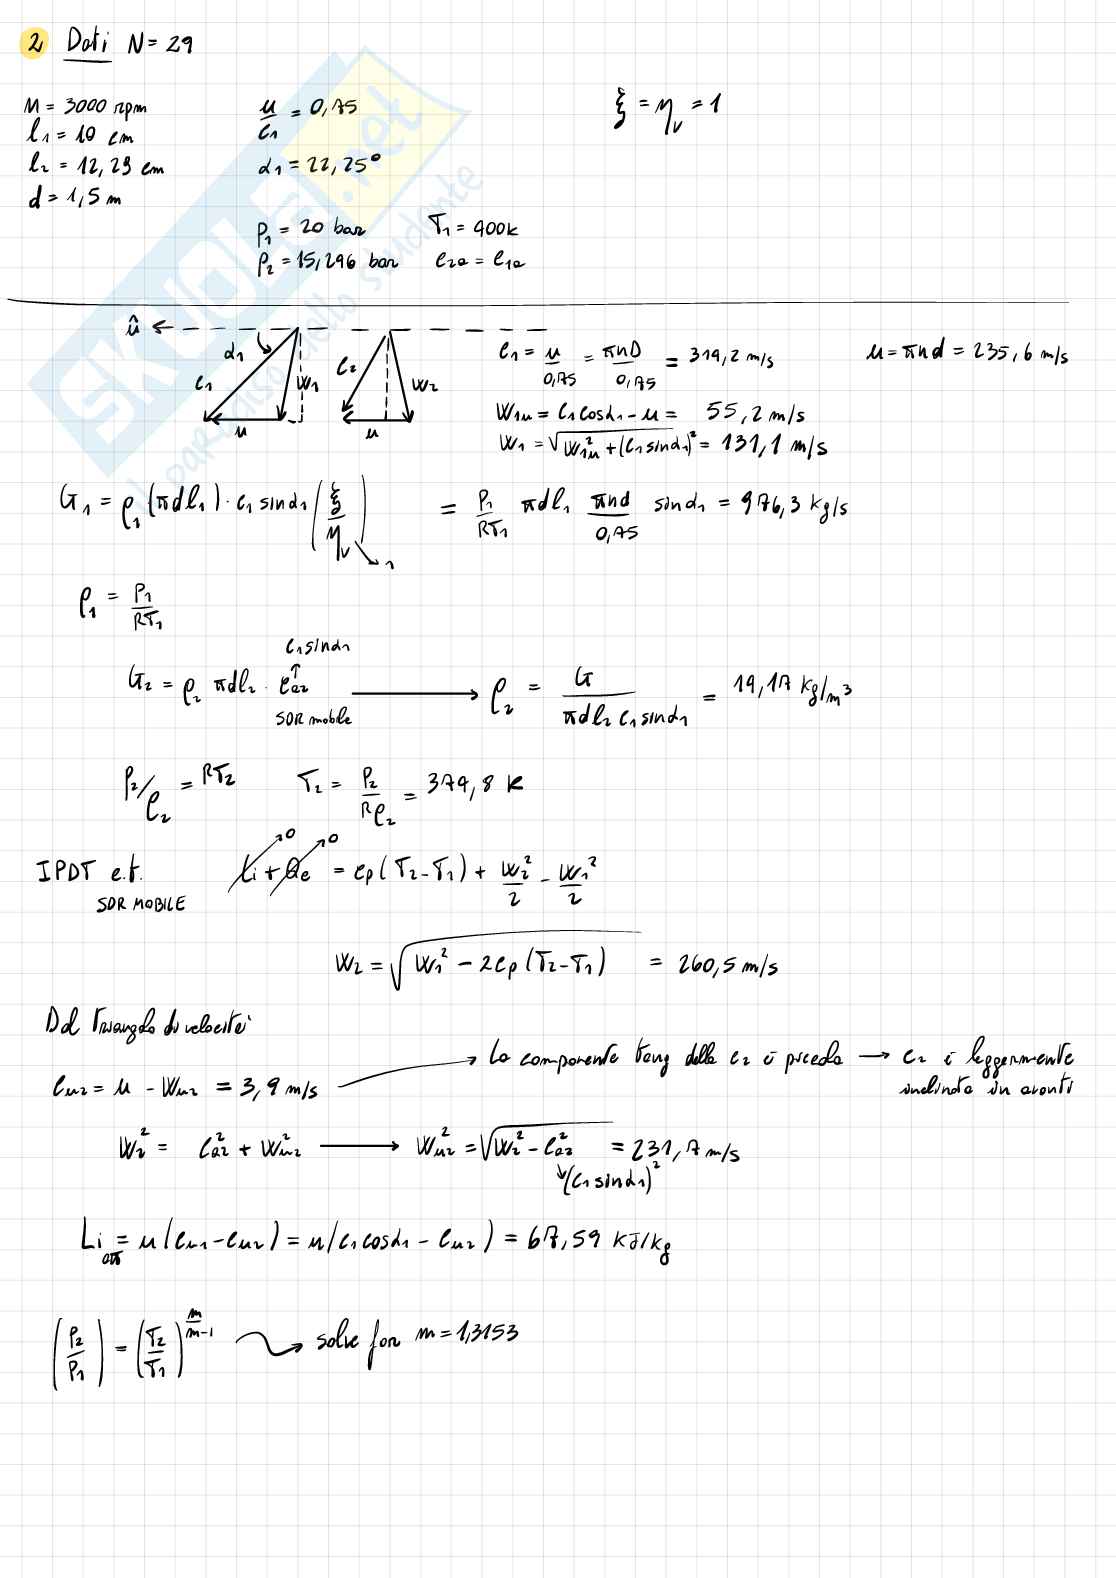 2 Dati N = 29
n = 3000 rpm
l₁ = 10 cm
l₂ = 12,29 cm
d = 1,5 m
u/c₁ = 0,75
α₁ = 22,25°
ξ = η_v = 1
p₁ = 20 bar T₁ = 400K
p₂ = 15,296 bar c₂a = c₁a
û
α₁ c₁ w₁ u
c₂ w₂ u
c₁ = u/0,75 = πnD/0,75 = 314,2 m/s
u = πnd = 235,6 m/s
w₁u = c₁cosα₁ - u = 55,2 m/s
w₁ = √(w₁u² + (c₁sinα₁)²) = 131,1 m/s
G₁ = ρ₁ (πdl₁) · c₁sinα₁ (ξ/η_v) → 1 = p₁/RT₁ πdl₁ πnd/0,75 sinα₁ = 976,3 kg/s
ρ₁ = p₁/RT₁
c₁sinα₁
G₂ = ρ₂ πdl₂ · ca₂ → ρ₂ = G/(πdl₂ c₁sinα₁) = 14,17 kg/m³
SDR mobile
p₂/ρ₂ = RT₂ T₂ = p₂/Rρ₂ = 374,8 K
IPDT e.t. Li + Qe = cp(T₂-T₁) + w₂²/2 - w₁²/2
0 0
SDR MOBILE
w₂ = √(w₁² - 2cp(T₂-T₁)) = 260,5 m/s
Dal Triangolo di velocità
cu₂ = u - wu₂ = 3,9 m/s → la componente tang della c₂ è piccola → c₂ è leggermente
inclinata in avanti
w₂² = ca₂² + wu₂² → wu₂² = √(w₂² - ca₂²) = 231,7 m/s
(c₁sinα₁)²
Li = u(cu₁-cu₂) = u(c₁cosα₁ - cu₂) = 67,59 kJ/kg
(p₂/p₁) = (T₂/T₁)^(m/m-1) → solve for m = 1,3153
SKUOLA.net